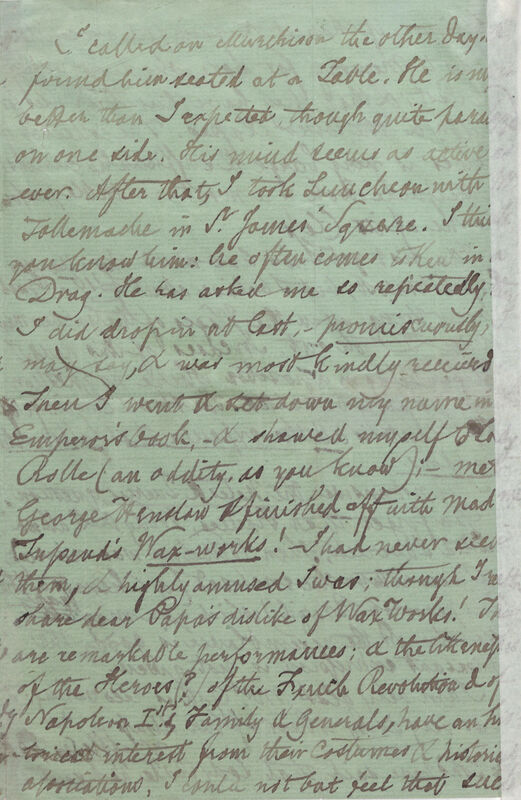 I called on Murchison the other day &
found him seated at a Table. He is m
better than I expected, though quite para
on one side. His mind seems as active
ever. After that, I took Luncheon with
Tollemache in St. James' Square. I thi
you know him: he often comes in
Drag. He has asked me so repeatedly,
I did drop in at last, – promiscuously,
may say, & was most kindly received
Then I went & set down my name in
Emperor's book, – & showed myself to La
Rolle (an oddity, as you know); – met
George Henslow & finished off with Mad
Tussaud's Wax-works! – I had never seen
them, & highly amused I was; though I
share dear Papa's dislike of Wax Works! Th
are remarkable performances; & the likeness
of the Heroes (?) of the French Revolution & of
Napoleon Ist's Family & Generals, have an his
torical interest from their Costumes & historic
associations, I could not but feel that suc